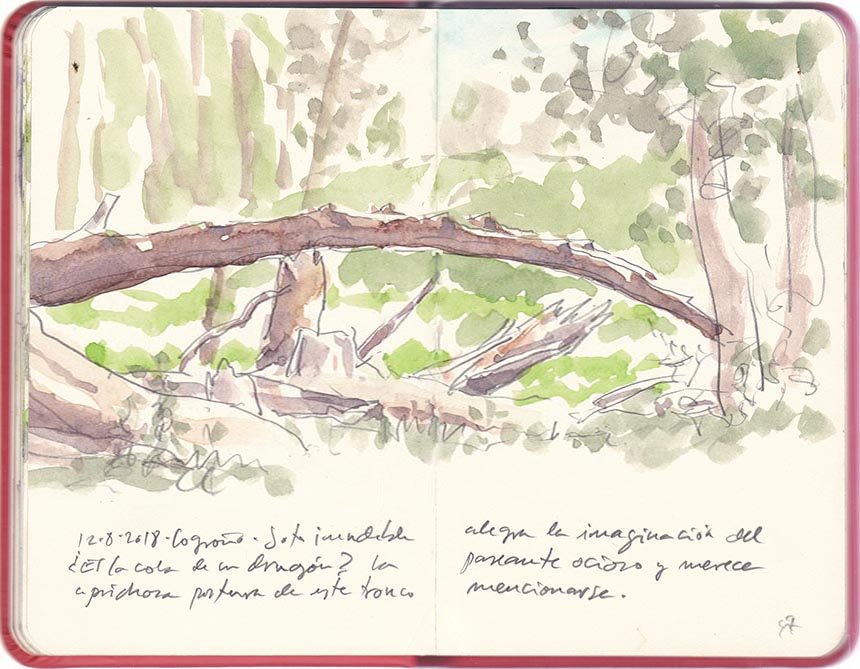 12·8·2018·Logroño·Soto inundable
¿Es la cola de un dragón? La
caprichosa postura de este tronco
alegra la imaginación del
paseante ocioso y merece
mencionarse.